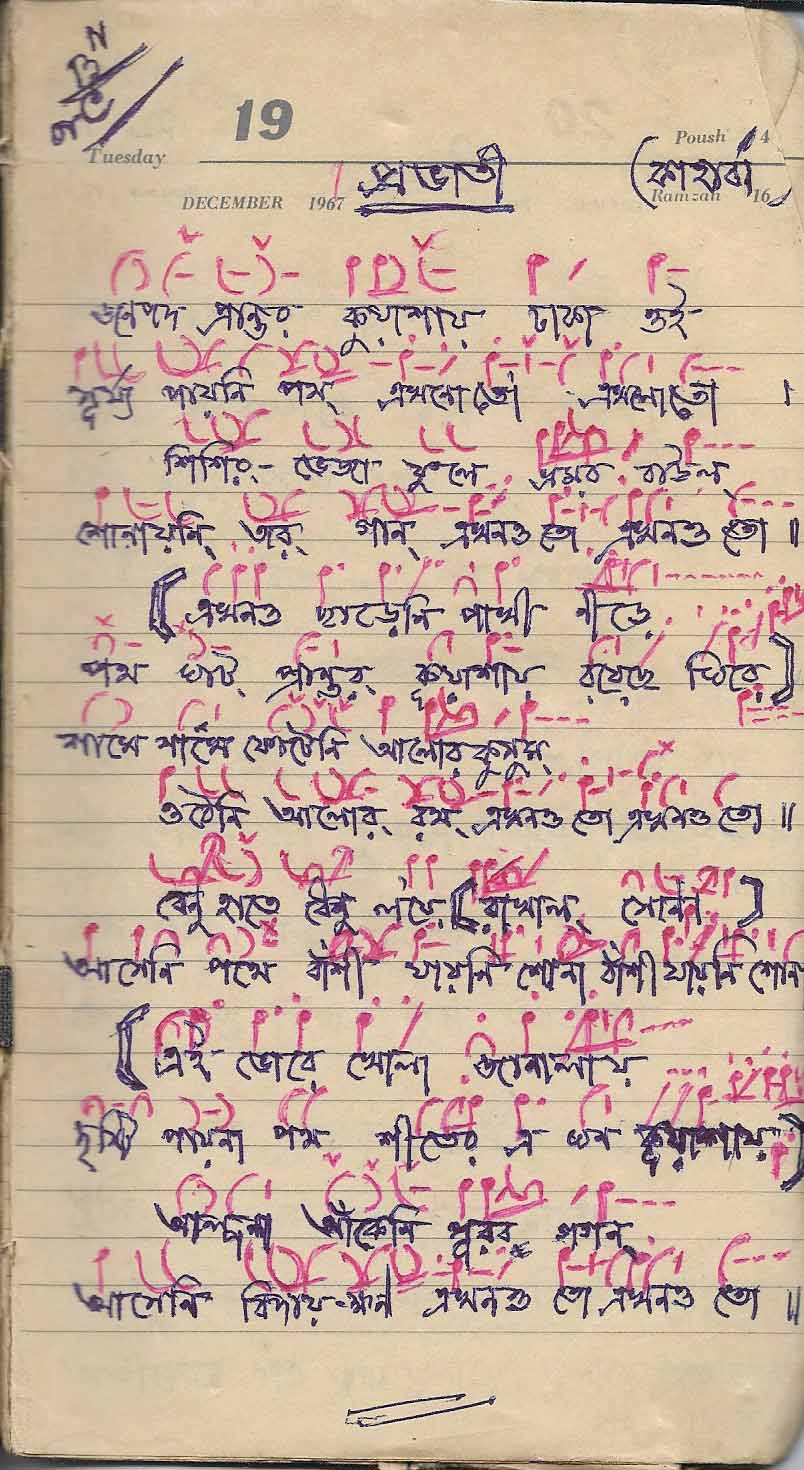 19
Poush 4
Tuesday
প্রভাতী (কাহারবা)
DECEMBER 1967 Ramzan 16
জনপদ প্রান্তর কুয়াশায় ঢাকা ওই
সূর্য্য পায়নি পথ্ এখনোতো এখনোতো ।
শিশির্- ভেজা ফুলে ভ্রমর বাউল্
শোনায়নি্ তার্ গান্ এখনও তো এখনও তো ॥
[ এখনও ছাড়েনি পাখী নীড়ে
পথ ঘাট্ প্রান্তর্ কুয়াশায় রয়েছে ঘিরে ]
শাখে শাখে ফোটেনি আলোর কুসুম্
ওঠেনি আলোর্ রথ্ এখনও তো এখনও তো ॥
ধেনু হাতে বেনু লয়ে [ রাখাল্ ]
আসেনি পথে বাঁশী যায়নি শোনা বাঁশী যায়নি শোনা
[ এই ভোরে খোলা জানালায়
দৃষ্টি পায়না পথ শীতের এ ঘন কুয়াশায় ]
আল্পনা আঁকেনি পূরব গগন্
আসেনি বিদায়-ক্ষন এখনও তো এখনও তো ॥